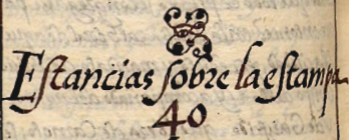 Estancias sobre la estampa
40